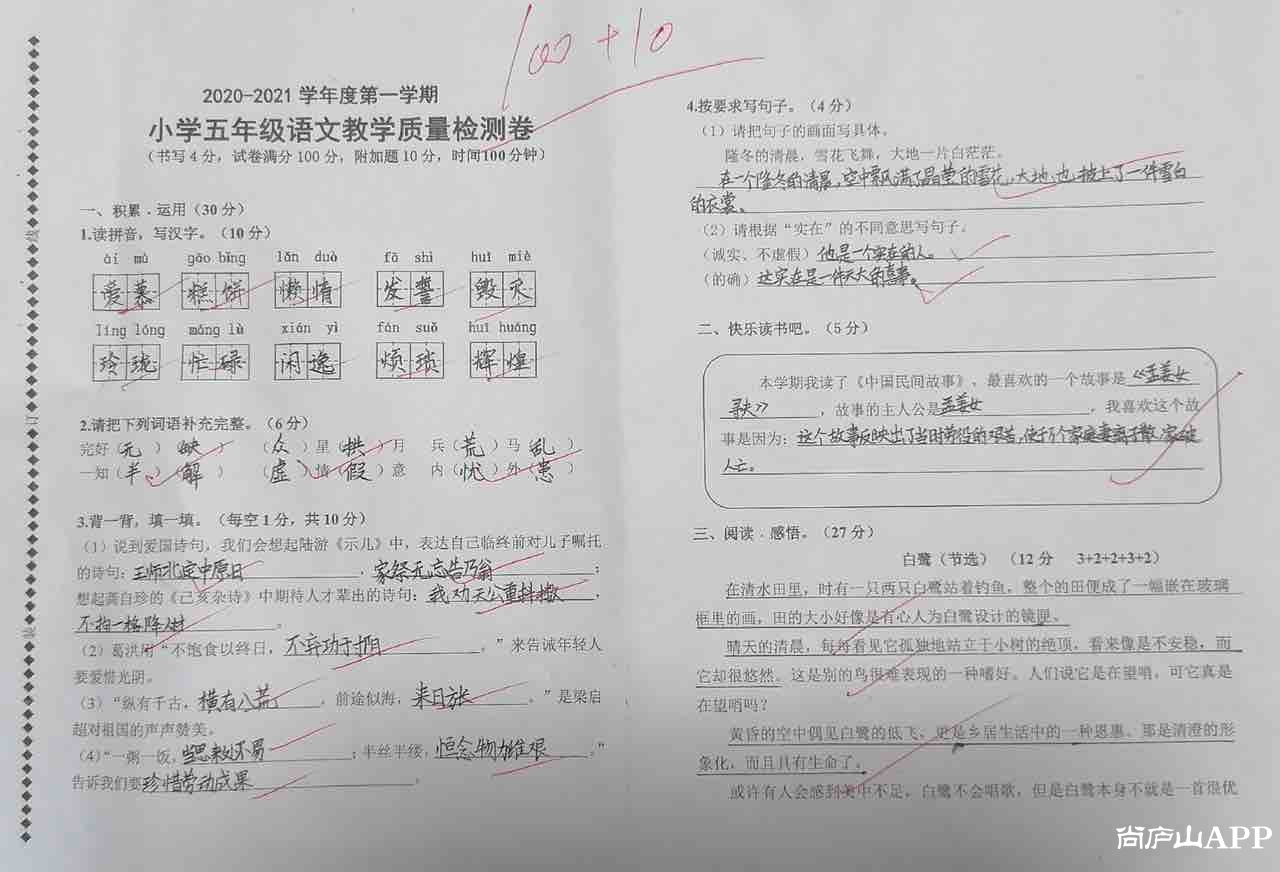 100+10
2020-2021 学年度第一学期
小学五年级语文教学质量检测卷
（书写 4 分，试卷满分 100 分，附加题 10 分，时间100 分钟）
一、积累 . 运用（30 分）
1.读拼音，写汉字。（10 分）
ài mù gāo bǐng lǎn duò fā shì huǐ miè
爱慕 糕饼 懒惰 发誓 毁灭
líng lóng máng lù xián yì fán suǒ huī huáng
玲珑 忙碌 闲逸 烦琐 辉煌
2.请把下列词语补充完整。（6 分）
完好（无）（缺） （众）星（拱）月 兵（荒）马（乱）
一知（半）（解） （虚）情（假）意 内（忧）外（患）
3.背一背，填一填。（每空 1 分，共 10 分）
（1）说到爱国诗句，我们会想起陆游《示儿》中，表达自己临终前对儿子嘱托
的诗句：王师北定中原日，家祭无忘告乃翁；
想起龚自珍的《己亥杂诗》中期待人才辈出的诗句：我劝天公重抖擞，
不拘一格降人材。
（2）葛洪用“不饱食以终日，不弃功于 。”来告诫年轻人
要爱惜光阴。
（3）“纵有千古，横有八荒，前途似海，来日 。”是梁启
超对祖国的声声赞美。
（4）“一粥一饭，当思来处不易；半丝半缕，恒念物力维艰。”
告诉我们要珍惜劳动成果。
4.按要求写句子。（4 分）
（1）请把句子的画面写具体。
隆冬的清晨，雪花飞舞，大地一片白茫茫。
在一个隆冬的清晨，空中飘满了晶莹的雪花，大地也披上了一件雪白
的衣裳。
（2）请根据“实在”的不同意思写句子。
（诚实、不虚假）他是一个实在的人。
（的确）这实在是一件天大的喜事。
二、快乐读书吧。（5 分）
本学期我读了《中国民间故事》，最喜欢的一个故事是《孟姜女
寻夫》，故事的主人公是孟姜女，我喜欢这个故
事是因为：这个故事反映出了当时劳役的艰苦，使千万个家庭妻离子散，家破
人亡。
三、阅读 . 感悟。（27 分）
白鹭（节选）（12 分 3+2+2+3+2）
在清水田里，时有一只两只白鹭站着钓鱼，整个的田便成了一幅嵌在玻璃
框里的画，田的大小好像是有心人为白鹭设计的镜匣。
晴天的清晨，每每看见它孤独地站立于小树的绝顶，看来像是不安稳，而
它却很悠然。这是别的鸟很难表现的一种嗜好。人们说它是在望哨，可它真是
在望哨吗？
黄昏的空中偶见白鹭的低飞，更是乡居生活中的一种恩惠。那是清澄的形
象化，而且具有生命了。
或许有人会感到美中不足，白鹭不会唱歌，但是白鹭本身不就是一首很优
订
尚庐山APP